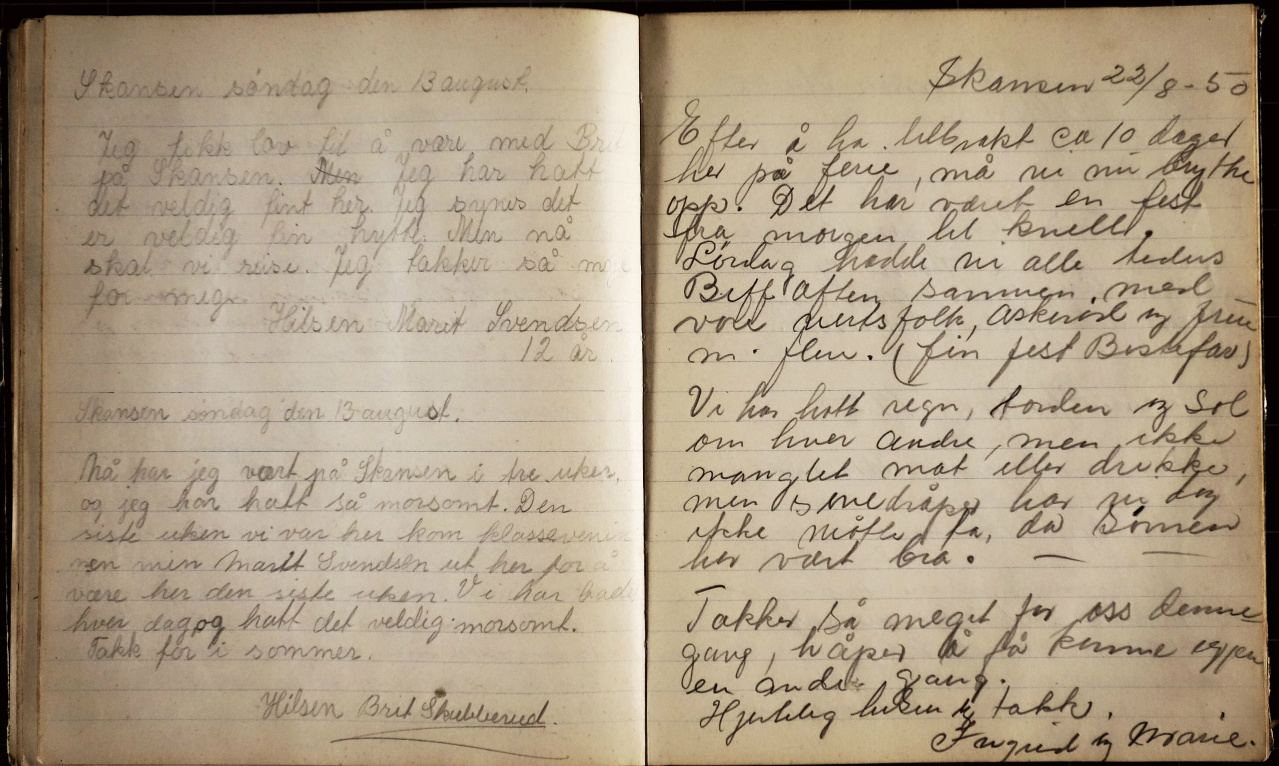 Skansen søndag den 13 august.
Jeg fikk lov til å være med Brit
på Skansen. Men Jeg har hatt
det veldig fint her. Jeg synes det
er veldig fin hytte. Men nå
skal vi reise. Jeg takker så mye
for meg.
Hilsen Marit Svendsen
12 år.
Skansen søndag den 13 august.
Nå har jeg vært på Skansen i tre uker,
og jeg har hatt så morsomt. Den
siste uken vi var her kom klassevenin
nen min Marit Svendsen ut her for å
være her den siste uken. Vi har badet
hver dag og hatt det veldig morsomt.
Takk for i sommer.
Hilsen Brit Skubberud.
Skansen 22/8-50
Efter å ha tilbrakt ca 10 dager
her på ferie, må vi nu brythe
opp. Det har været en fest
fra morgen til kveld.
Lørdag hadde vi alle tiders
Biff aften sammen med
våre vertsfolk, Askerød og frue
m. flere. (fin fest Bestefar)
Vi har hatt regn, torden og Sol
om hver andre, men ikke
manglet mat eller drikke,
men sovedråper har vi dog
ikke måtte ta, da sømnen
har vært bra.
Takker så meget for oss denne
gang, håper å få komme igjen
en anden gang.
Hjertelig hilsen og takk.
Ingrid og Marie.